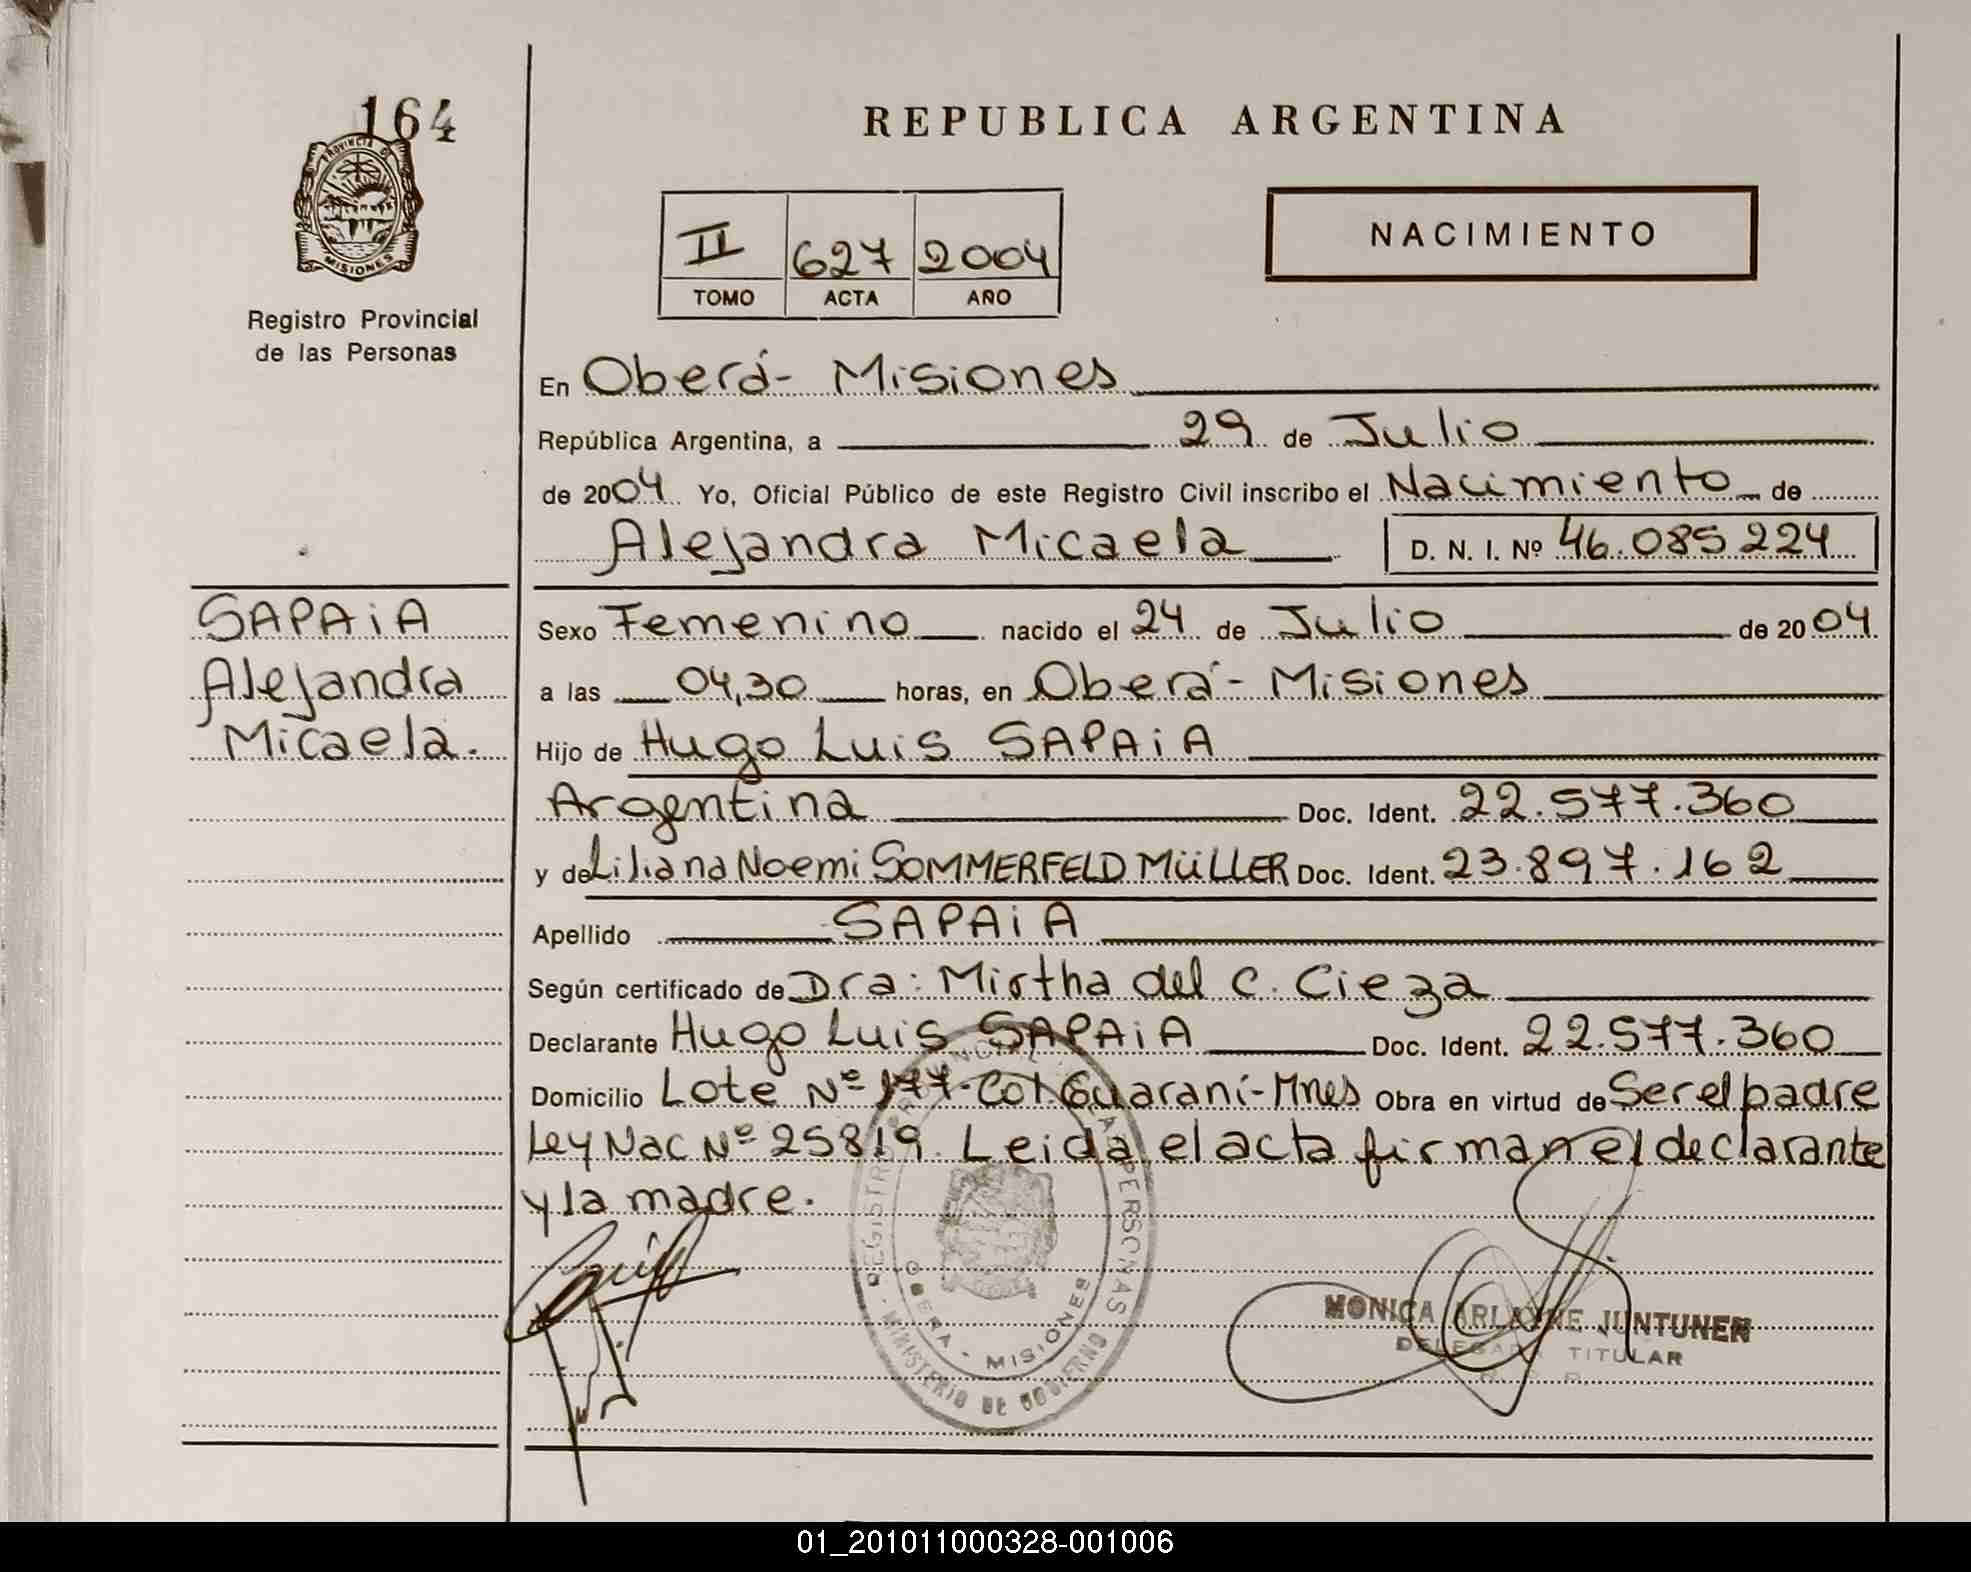 164
PROVINCIA DE
MISIONES
Registro Provincial
de las Personas
REPUBLICA ARGENTINA
II 627 2004
TOMO ACTA AÑO
NACIMIENTO
En Oberá- Misiones
República Argentina, a 29 de Julio
de 2004 Yo, Oficial Público de este Registro Civil inscribo el Nacimiento de
Alejandra Micaela D. N. I. Nº 46.085224
SAPAiA
Alejandra
Micaela.
Sexo Femenino nacido el 24 de Julio de 2004
a las 04,30 horas, en Oberá- Misiones
Hijo de Hugo Luis SAPAiA
Argentina Doc. Ident. 22.577.360
y de Liliana Noemi SOMMERFELD MüLLER Doc. Ident. 23.897.162
Apellido SAPAiA
Según certificado de Dra: Mirtha del C. Cieza
Declarante Hugo Luis SAPAiA Doc. Ident. 22.577.360
Domicilio Lote Nº 177-Col. Guaraní-Mnes Obra en virtud de Ser el padre
Ley Nac Nº 25819. Leida el acta firman el declarante
y la madre.
REGISTRO PROVINCIAL PERSONAS
OBERA - MISIONES
MINISTERIO DE GOBIERNO
MONICA ARLAYNE JUNTUNEN
DELEGADA TITULAR
01_201011000328-001006